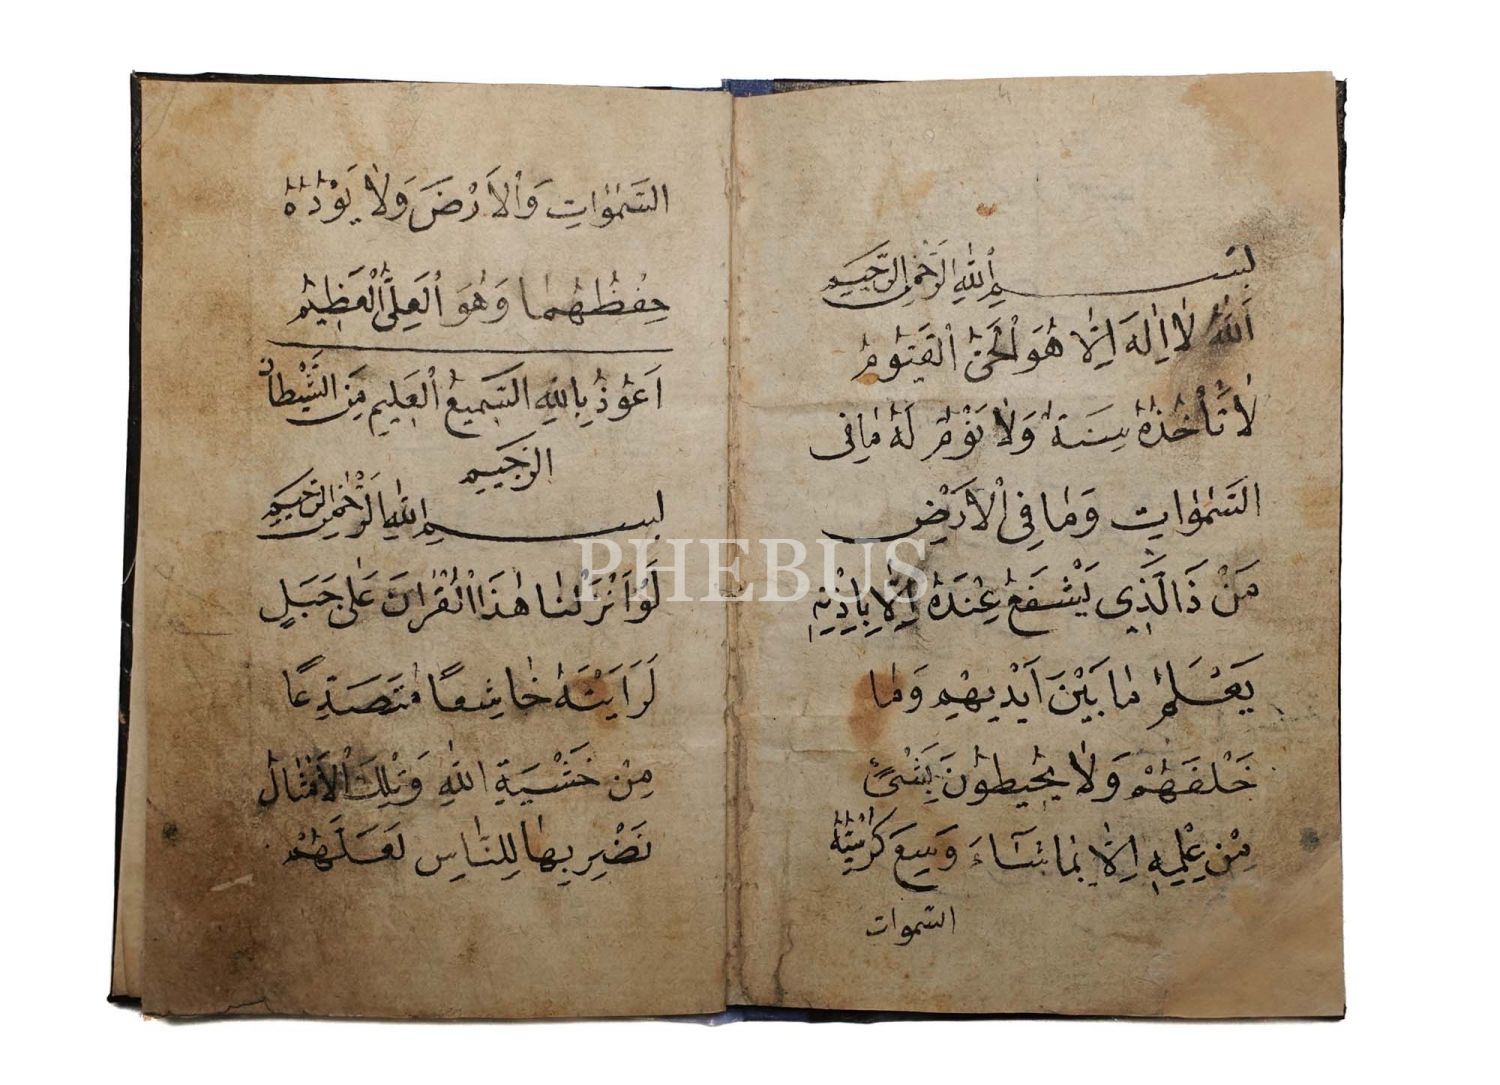 بسم الله الرحمن الرحيم
اَللهُ لَا اِلٰهَ اِلَّا هُوَ اْلحَىُّ اْلقَيُّومُ
لَا تَأْخُذُهُ سِنَةٌ وَلَا نَوْمٌ لَهُ مَا فِى
السَّمٰوَاتِ وَمَا فِى اْلاَرْضِ
مَنْ ذَالَّذِى يَشْفَعُ عِنْدَهُ اِلَّا بِاِذْنِهِ
يَعْلَمُ مَا بَيْنَ اَيْدِيهِمْ وَمَا
خَلْفَهُمْ وَلَا يُحِيطُونَ بِشَىْءٍ
مِنْ عِلْمِهِ اِلَّا بِمَا شَاءَ وَسِعَ كُرْسِيُّهُ
السموات
السَّمٰوَاتِ وَاْلاَرْضَ وَلَا يَؤُدُهُ
حِفْظُهُمَا وَهُوَ اْلعَلِىُّ اْلعَظِيمُ
اَعُوذُ بِاللهِ السَّمِيعُ اْلعَلِيمِ مِنَ الشَّيْطَانِ
الرَّجِيمِ
بسم الله الرحمن الرحيم
لَوْ اَنْزَلْنَا هٰذَا اْلقُرْاٰنَ عَلٰى جَبَلٍ
لَرَاَيْتَهُ خَاشِعًا مُتَصَدِّعًا
مِنْ خَشْيَةِ اللهِ وَتِلْكَ اْلاَمْثَالُ
نَضْرِبُهَا لِلنَّاسِ لَعَلَّهُمْ
PHEBUS